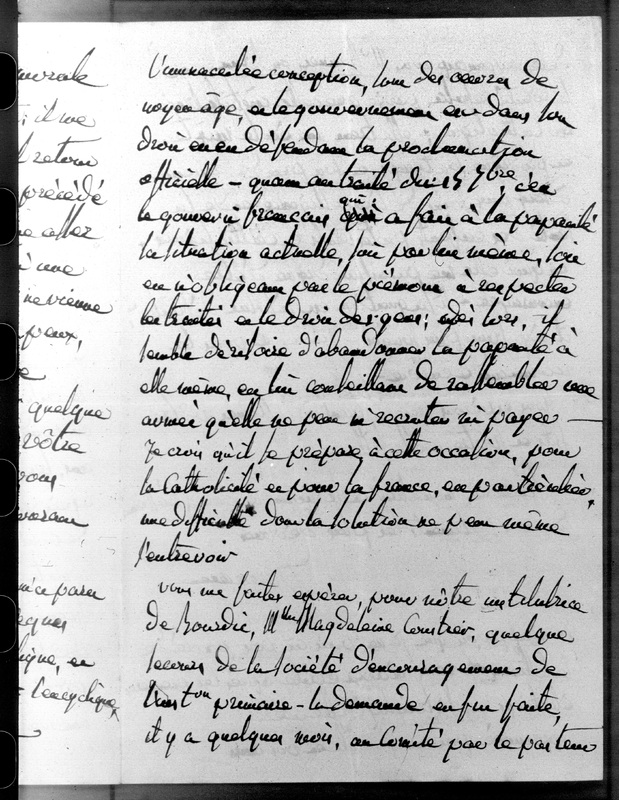 morale
il me
retour
précédé
aller
à une
ne vienne
peux,
quelque
vôtre
vous
m'a paru
ligue, en
l'encyclique,
l'immaculée conception, l'un des œuvres de
moyen âge, et le gouvernement est dans son
droit en en défendant la proclamation
officielle – quant au traité du 15 7bre, c'est
le gouvert français qui a fait à la papauté
la situation actuelle, soit par lui même, soit
en n'obligeant pas le piémont à respecter
les traités et le droit des gens; dès lors, il
semble dérisoire d'abandonner la papauté à
elle même, en lui conseillant de rassembler une
armée qu'elle ne peut ni recruter ni payer —
Je crois qu'il se prépare, à cette occasion, pour
la Catholicité et pour la france, en particulier,
une difficulté dont la solution ne peut même
s'entrevoir
vous me faites espérer, pour nôtre institutrice
de Bourdic, Mlle Magdeleine quelque
secours de la société d'encouragement de
l'inston primaire – la demande en fut faite,
il y a quelques mois, au Comité par le pasteur